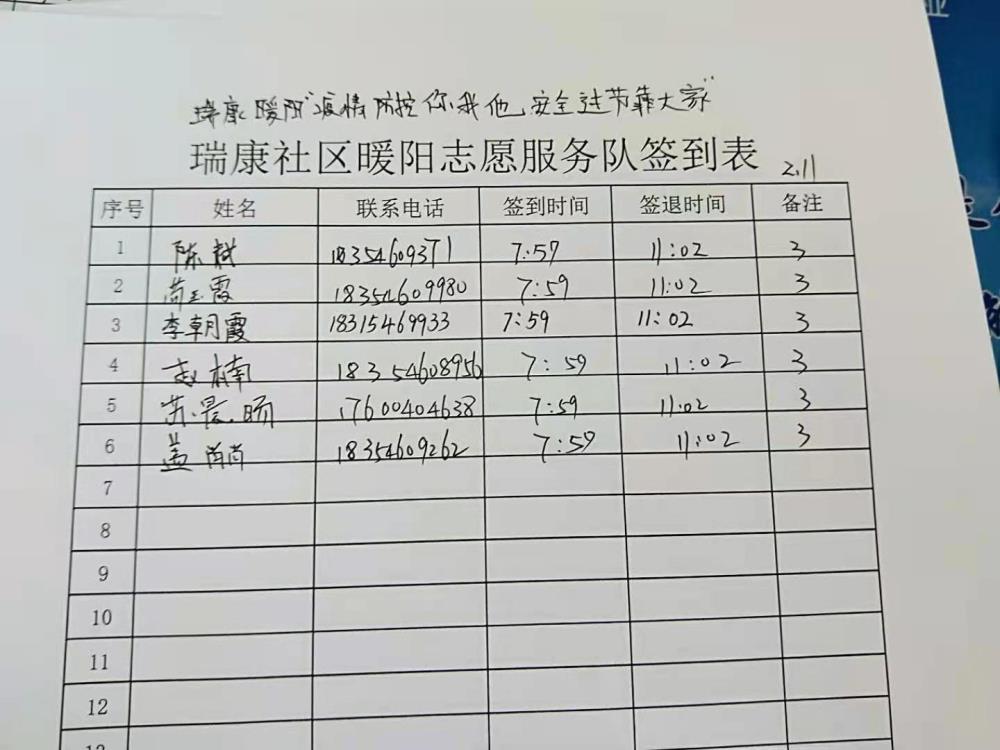 瑞康暖阳"疫情防控你我他,安全过节靠大家"
瑞康社区暖阳志愿服务队签到表 2.11
序号 姓名 联系电话 签到时间 签退时间 备注
1 陈斌 18354609371 7:57 11:02 3
2 苟玉霞 18354609980 7:59 11:02 3
3 李朝霞 18315469933 7:59 11:02 3
4 赵楠 18354608956 7:59 11:02 3
5 苏晨旸 17600404638 7:59 11:02 3
6 盖尚尚 18354609262 7:59 11:02 3
7
8
9
10
11
12
13